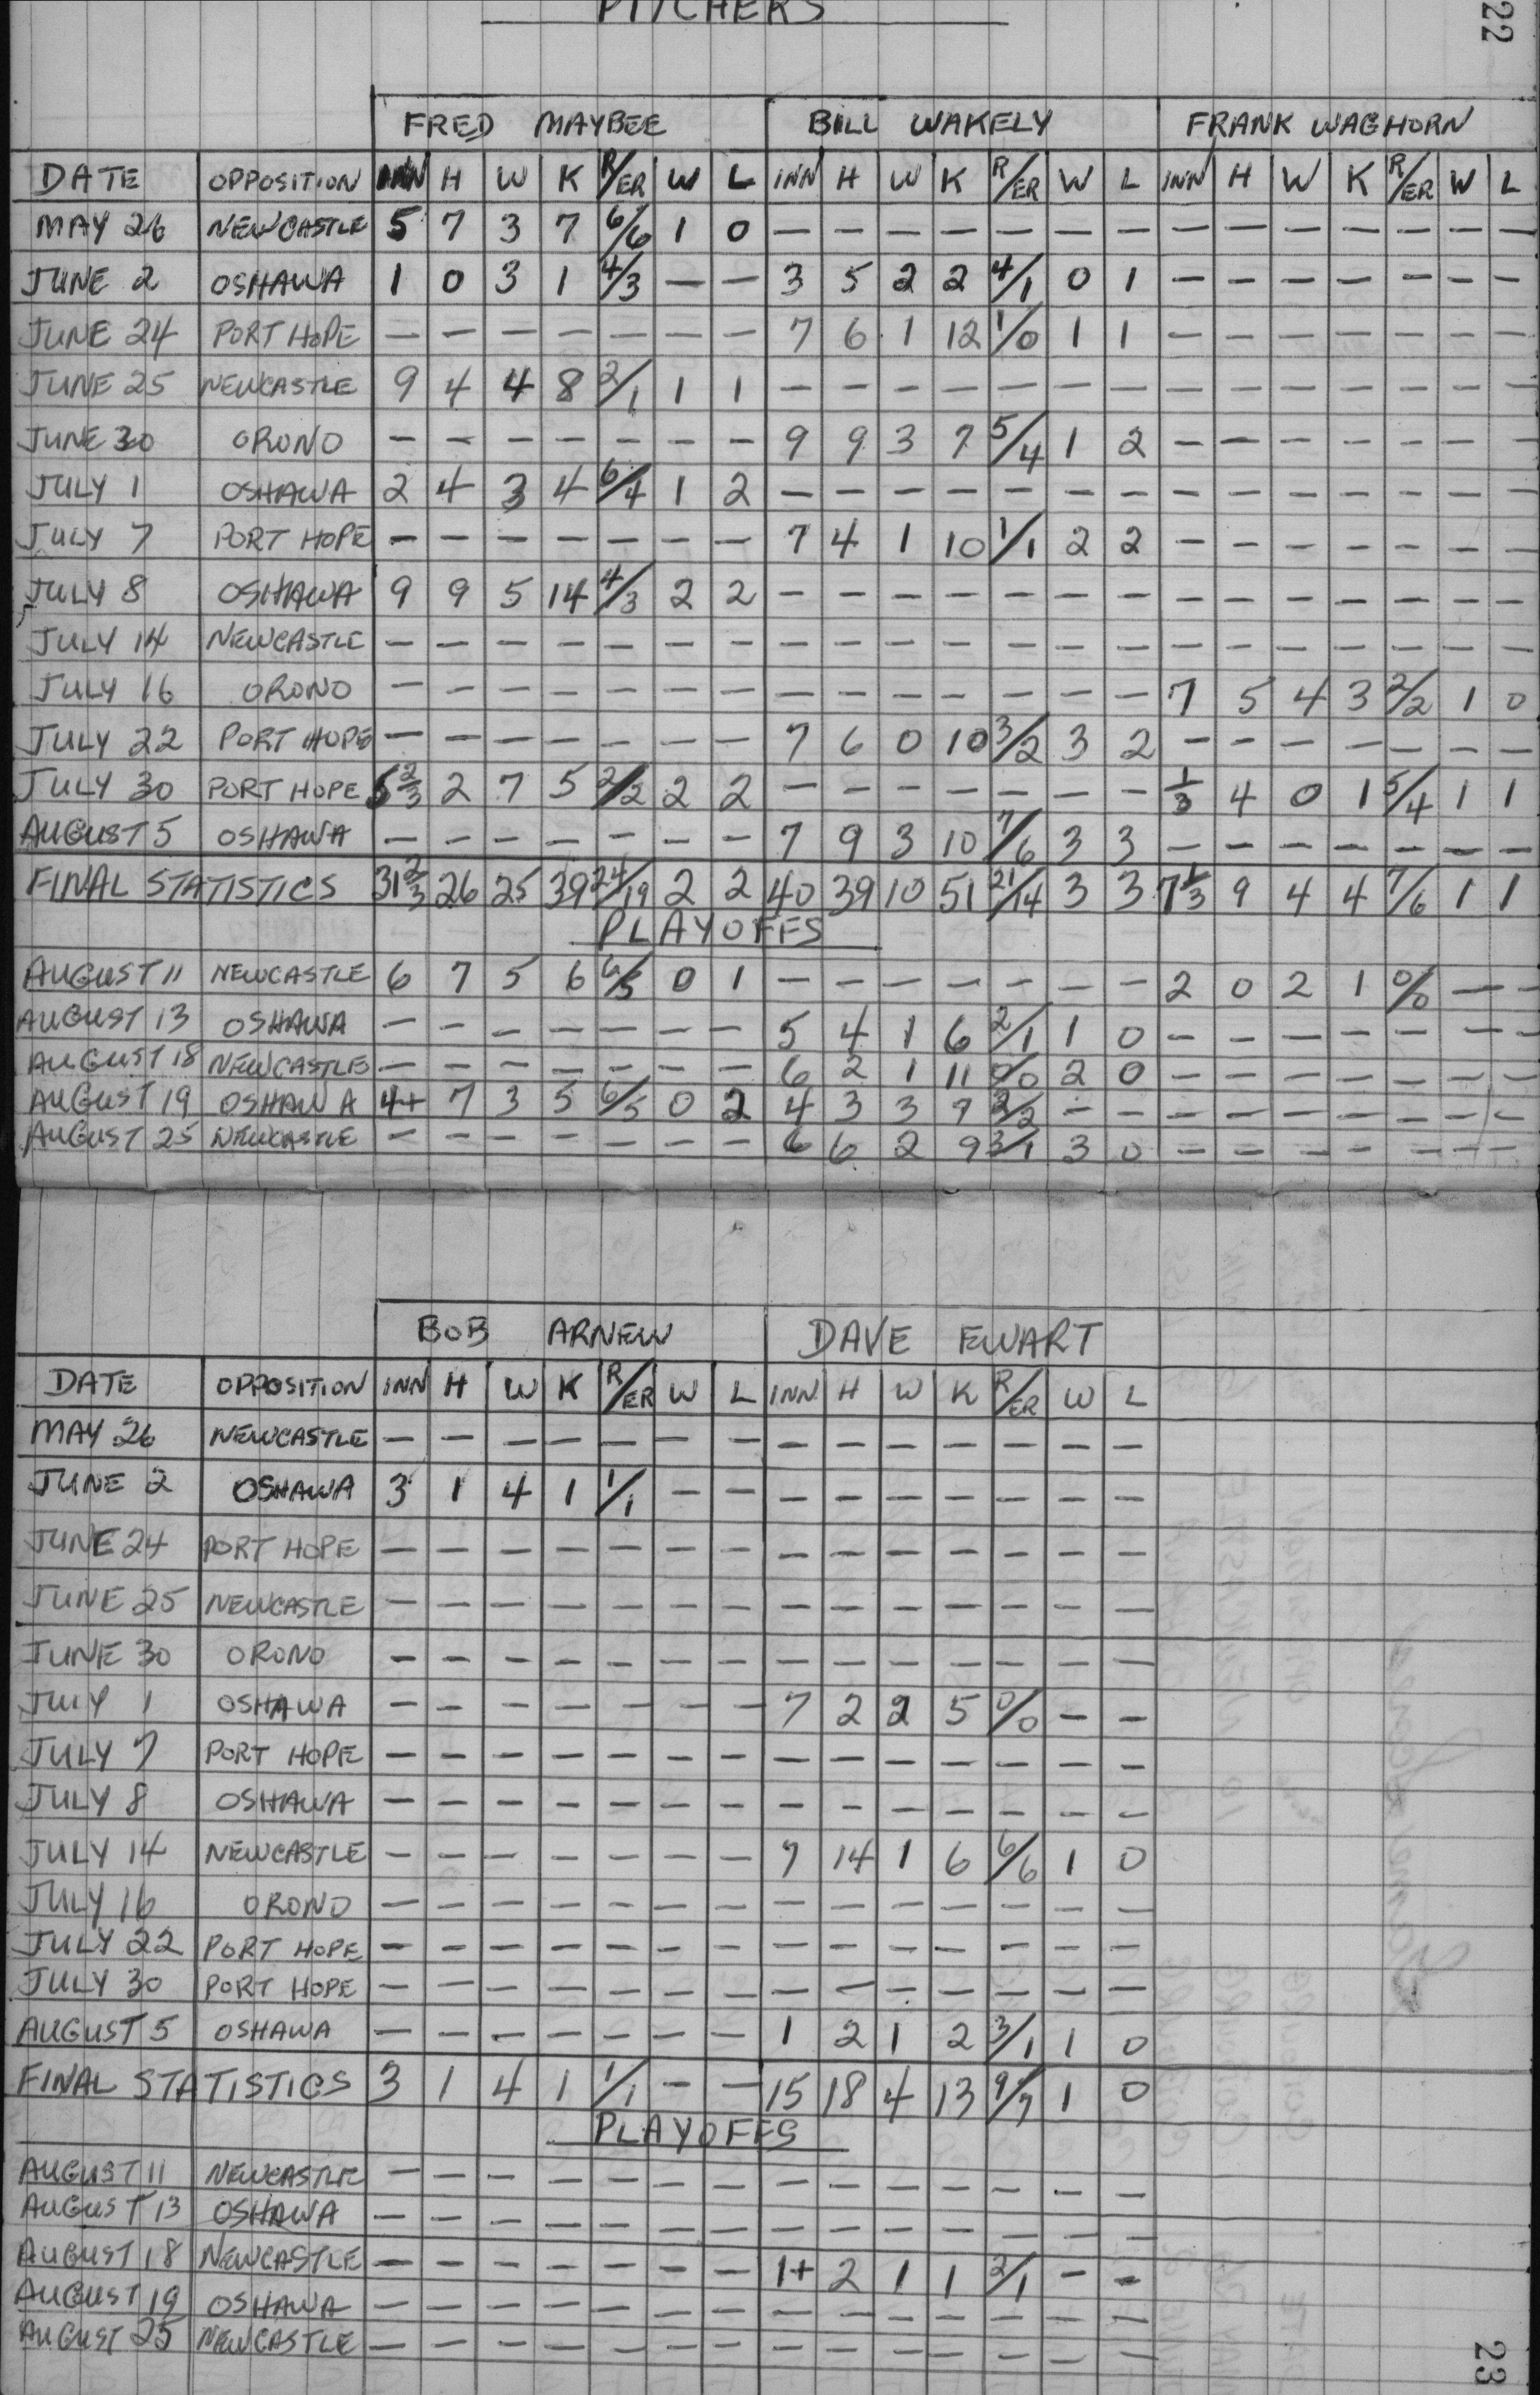 PITCHERS
22
FRED MAYBEE BILL WAKELY FRANK WAGHORN
DATE OPPOSITION INN H W K R/ER W L INN H W K R/ER W L INN H W K R/ER W L
MAY 26 NEWCASTLE 5 7 3 7 6/6 1 0 — — — — — — — — — — — — — —
JUNE 2 OSHAWA 1 0 3 1 4/3 — — 3 5 2 2 4/1 0 1 — — — — — — —
JUNE 24 PORT HOPE — — — — — — — 7 6 1 12 1/0 1 1 — — — — — — —
JUNE 25 NEWCASTLE 9 4 4 8 2/1 1 1 — — — — — — — — — — — — — —
JUNE 30 ORONO — — — — — — — 9 9 3 7 5/4 1 2 — — — — — — —
JULY 1 OSHAWA 2 4 3 4 6/4 1 2 — — — — — — — — — — — — — —
JULY 7 PORT HOPE — — — — — — — 7 4 1 10 1/1 2 2 — — — — — — —
JULY 8 OSHAWA 9 9 5 14 4/3 2 2 — — — — — — — — — — — — — —
JULY 14 NEWCASTLE — — — — — — — — — — — — — — — — — — — — —
JULY 16 ORONO — — — — — — — — — — — — — — 7 5 4 3 2/2 1 0
JULY 22 PORT HOPE — — — — — — — 7 6 0 10 3/2 3 2 — — — — — — —
JULY 30 PORT HOPE 5 2/3 2 7 5 2/2 2 2 — — — — — — — 1/3 4 0 1 5/4 1 1
AUGUST 5 OSHAWA — — — — — — — 7 9 3 10 7/6 3 3 — — — — — — —
FINAL STATISTICS 31 2/3 26 25 39 24/19 2 2 40 39 10 51 21/14 3 3 7 1/3 9 4 4 7/6 1 1
PLAYOFFS
AUGUST 11 NEWCASTLE 6 7 5 6 6/5 0 1 — — — — — — — 2 0 2 1 0/0 — —
AUGUST 13 OSHAWA — — — — — — — 5 4 1 6 2/1 1 0 — — — — — — —
AUGUST 18 NEWCASTLE — — — — — — — 6 2 1 11 0/0 2 0 — — — — — — —
AUGUST 19 OSHAWA 4+ 7 3 5 6/5 0 2 4 3 3 7 2/2 — — — — — — — — —
AUGUST 25 NEWCASTLE — — — — — — — 6 6 2 9 3/1 3 0 — — — — — — —
BOB ARNEW DAVE EWART
DATE OPPOSITION INN H W K R/ER W L INN. H W K R/ER W L
MAY 26 NEWCASTLE — — — — — — — — — — — — — —
JUNE 2 OSHAWA 3 1 4 1 1/1 — — — — — — — — —
JUNE 24 PORT HOPE — — — — — — — — — — — — — —
JUNE 25 NEWCASTLE — — — — — — — — — — — — — —
JUNE 30 ORONO — — — — — — — — — — — — — —
JULY 1 OSHAWA — — — — — — — 7 2 2 5 0/0 — —
JULY 7 PORT HOPE — — — — — — — — — — — — — —
JULY 8 OSHAWA — — — — — — — — — — — — — —
JULY 14 NEWCASTLE — — — — — — — 7 14 1 6 6/6 1 0
JULY 16 ORONO — — — — — — — — — — — — — —
JULY 22 PORT HOPE — — — — — — — — — — — — — —
JULY 30 PORT HOPE — — — — — — — — — — — — — —
AUGUST 5 OSHAWA — — — — — — — 1 2 1 2 3/1 1 0
FINAL STATISTICS 3 1 4 1 1/1 — — 15 18 4 13 9/7 1 0
PLAYOFFS
AUGUST 11 NEWCASTLE — — — — — — — — — — — — — —
AUGUST 13 OSHAWA — — — — — — — — — — — — — —
AUGUST 18 NEWCASTLE — — — — — — — 1+ 2 1 1 2/1 — —
AUGUST 19 OSHAWA — — — — — — — — — — — — — —
AUGUST 25 NEWCASTLE — — — — — — — — — — — — — —
23